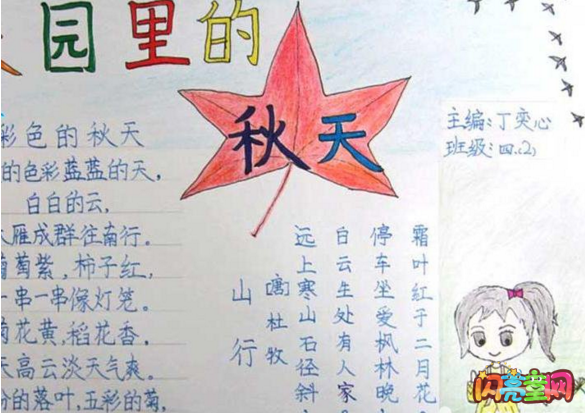 园里的
秋天
彩色的秋天
的色彩蓝蓝的天,
白白的云,
雁成群往南行。
葡萄紫,柿子红,
一串一串像灯笼。
菊花黄,稻花香,
天高云淡天气爽。
的落叶,五彩的菊,
山行
[唐]杜牧
远上寒山石径斜
白云生处有人家
停车坐爱枫林晚
霜叶红于二月花
主编:丁奕心
班级:四.(2)
闪亮童网